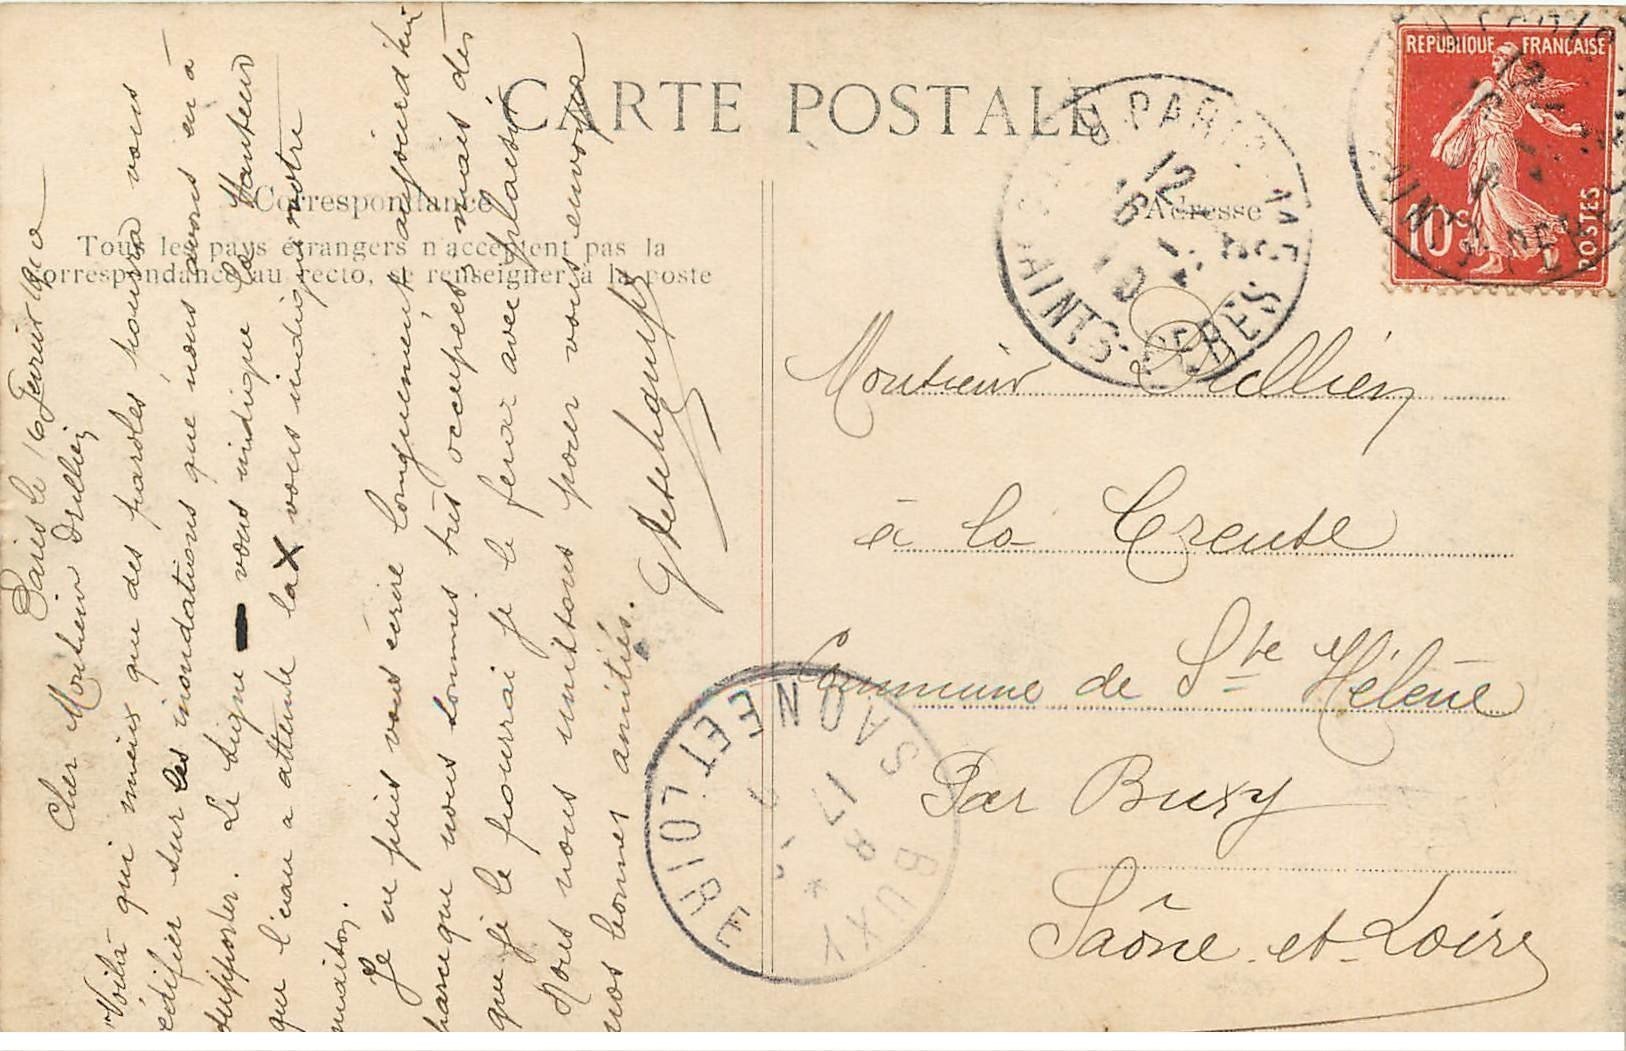 CARTE POSTALE
Correspondance
Tous les pays étrangers n'acceptent pas la
correspondance au recto, se renseigner à la poste
Adresse
REPUBLIQUE FRANÇAISE
10c
POSTES
PARIS
12
16
SAINTS-PERES
Monsieur Drillien
à la Creuse
Commune de Ste Hélène
Par Buxy
Saône-et-Loire
BUXY
SAONE ET LOIRE
17
8
Paris le 16 Février 1910
Cher Monsieur Drillien
Voilà qui mieux que des paroles pourra vous
édifier sur les inondations que nous avons eu à
supporter. Le signe — vous indique la Hauteur
que l'eau a atteinte la X vous indique notre
maison.
Je ne puis vous écrire longuement aujourd'hui
parceque nous sommes très occupées, mais dès
que je le pourrai je le ferai avec plaisir
Nous nous unissons pour vous envoyer
nos bonnes amitiés.